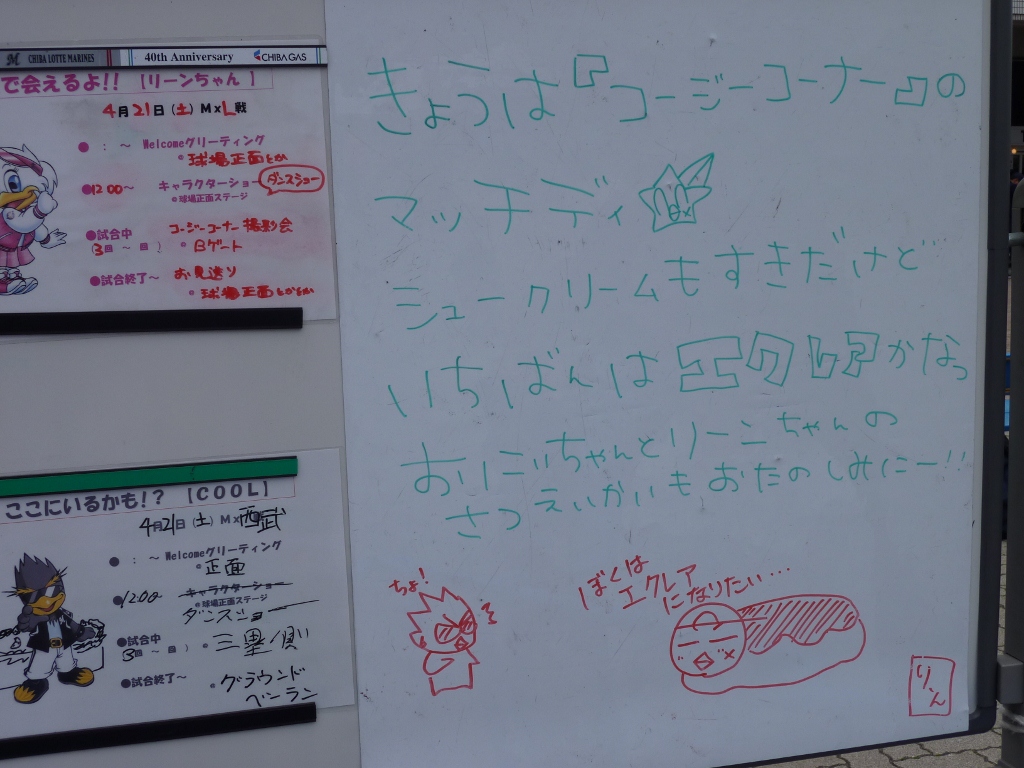 CHIBA LOTTE MARINES 40th Anniversary CHIBA GAS
で会えるよ!! 【リーンちゃん】
4月21日(土) M×L戦
● : ～ Welcomeグリーティング
・球場正面とか
●12:00～ キャラクターショー ダンスショー
・球場正面ステージ
●試合中 コージーコーナー撮影会
3回 ～ 回) ・Bゲート
●試合終了～ お見送り
・球場正面とかとか
ここにいるかも!? 【COOL】
4月21日(土) M×西武
● : ～ Welcomeグリーティング
・正面
●12:00 キャラクターショー
・球場正面ステージ
ダンスショー
●試合中 ・三塁側
3回～ 回)
●試合終了～ ・グラウンド
ベーラン
きょうは『コージーコーナー』の
マッチデイ
シュークリームもすきだけど
いちばんは エクレアかなっ
おりごいちゃんとリーンちゃんの
さつえいかいもおたのしみにー!!
ちょ!
ぼくは
エクレア
になりたい…
りん